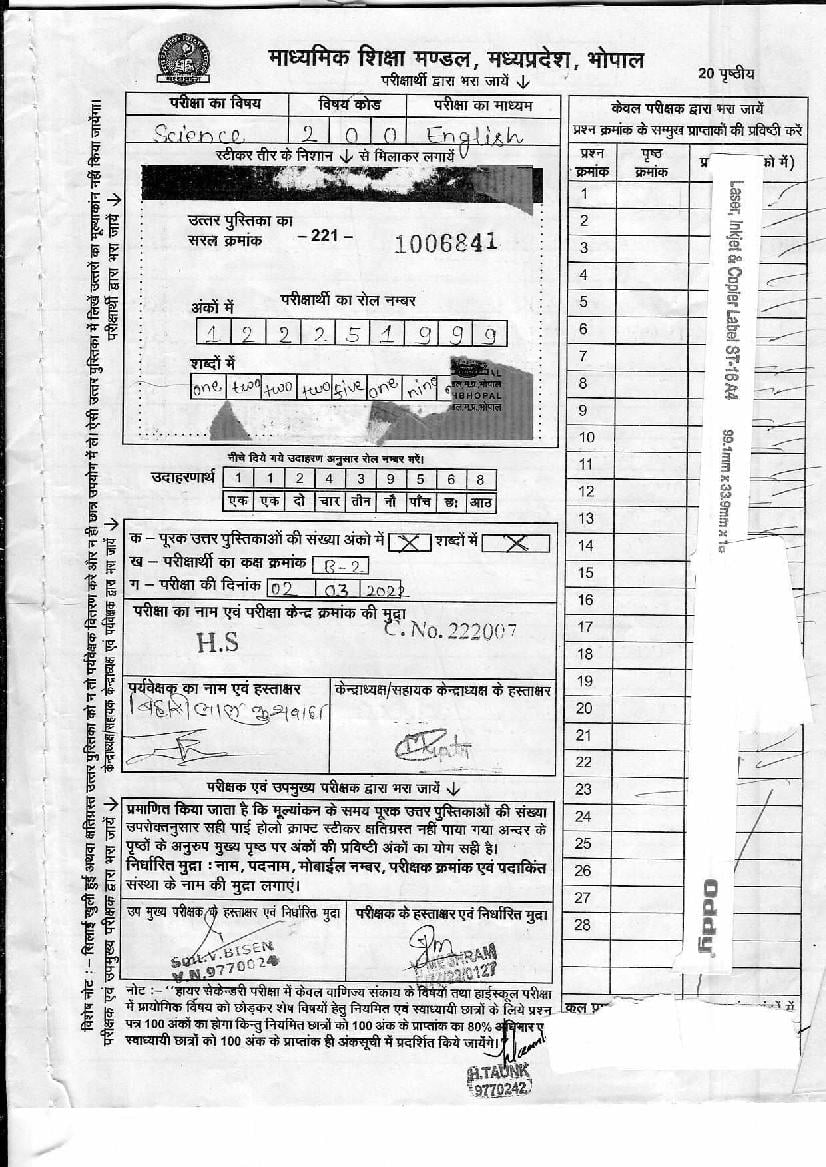 माध्यमिक शिक्षा मण्डल, मध्यप्रदेश, भोपाल
परीक्षार्थी द्वारा भरा जायें ↓
20 पृष्ठीय
परीक्षा का विषय विषय कोड परीक्षा का माध्यम
Science 2 0 0 English
स्टीकर तीर के निशान ↓ से मिलाकर लगायें
उत्तर पुस्तिका का
सरल क्रमांक - 221 - 1006841
अंकों में परीक्षार्थी का रोल नम्बर
1 2 2 2 5 1 9 9 9
शब्दों में
one two two two five one nine
BHOPAL
नीचे दिये गये उदाहरण अनुसार रोल नम्बर भरें।
उदाहरणार्थ 1 1 2 4 3 9 5 6 8
एक एक दो चार तीन नौ पाँच छः आठ
क – पूरक उत्तर पुस्तिकाओं की संख्या अंकों में X शब्दों में X
ख – परीक्षार्थी का कक्ष क्रमांक B-2
ग – परीक्षा की दिनांक 02 03 2022
परीक्षा का नाम एवं परीक्षा केन्द्र क्रमांक की मुद्रा
H.S C. No. 222007
पर्यवेक्षक का नाम एवं हस्ताक्षर केन्द्राध्यक्ष/सहायक केन्द्राध्यक्ष के हस्ताक्षर
परीक्षक एवं उपमुख्य परीक्षक द्वारा भरा जायें ↓
प्रमाणित किया जाता है कि मूल्यांकन के समय पूरक उत्तर पुस्तिकाओं की संख्या
उपरोक्तनुसार सही पाई होलो क्राफ्ट स्टीकर क्षतिग्रस्त नहीं पाया गया अन्दर के
पृष्ठों के अनुरुप मुख्य पृष्ठ पर अंकों की प्रविष्टी अंकों का योग सही है।
निर्धारित मुद्रा : नाम, पदनाम, मोबाईल नम्बर, परीक्षक क्रमांक एवं पदांकित
संस्था के नाम की मुद्रा लगाएं।
उप मुख्य परीक्षक के हस्ताक्षर एवं निर्धारित मुद्रा परीक्षक के हस्ताक्षर एवं निर्धारित मुद्रा
V.BISEN
V.N.9770024
नोट :- "हायर सेकेन्डरी परीक्षा में केवल वाणिज्य संकाय के विषयों तथा हाईस्कूल परीक्षा
में प्रायोगिक विषय को छोड़कर शेष विषयों हेतु नियमित एवं स्वाध्यायी छात्रों के लिये प्रश्न
पत्र 100 अंकों का होगा किन्तु नियमित छात्रों को 100 अंक के प्राप्तांक का 80% अधिभार एवं
स्वाध्यायी छात्रों को 100 अंक के प्राप्तांक ही अंकसूची में प्रदर्शित किये जायेंगे।"
H.TAUNK
9770242
केवल परीक्षक द्वारा भरा जायें
प्रश्न क्रमांक के सम्मुख प्राप्तांकों की प्रविष्टी करें
प्रश्न पृष्ठ
क्रमांक क्रमांक
1
2
3
4
5
6
7
8
9
10
11
12
13
14
15
16
17
18
19
20
21
22
23
24
25
26
27
28
Laser, Inkjet & Copier Label ST-16 A4 99.1mm x 33.9mm x 1
Oddy
विशेष नोट :- सिलाई खुली हुई अथवा क्षतिग्रस्त उत्तर पुस्तिका को न तो पर्यवेक्षक वितरण करें और न ही छात्र उपयोग में लें। ऐसी उत्तर पुस्तिका में लिखें उत्तरों का मूल्यांकन नहीं किया जायेगा।
परीक्षक एवं उपमुख्य परीक्षक द्वारा भरा जायें
केन्द्राध्यक्ष/सहायक केन्द्राध्यक्ष एवं पर्यवेक्षक द्वारा भरा जायें
परीक्षार्थी द्वारा भरा जायें